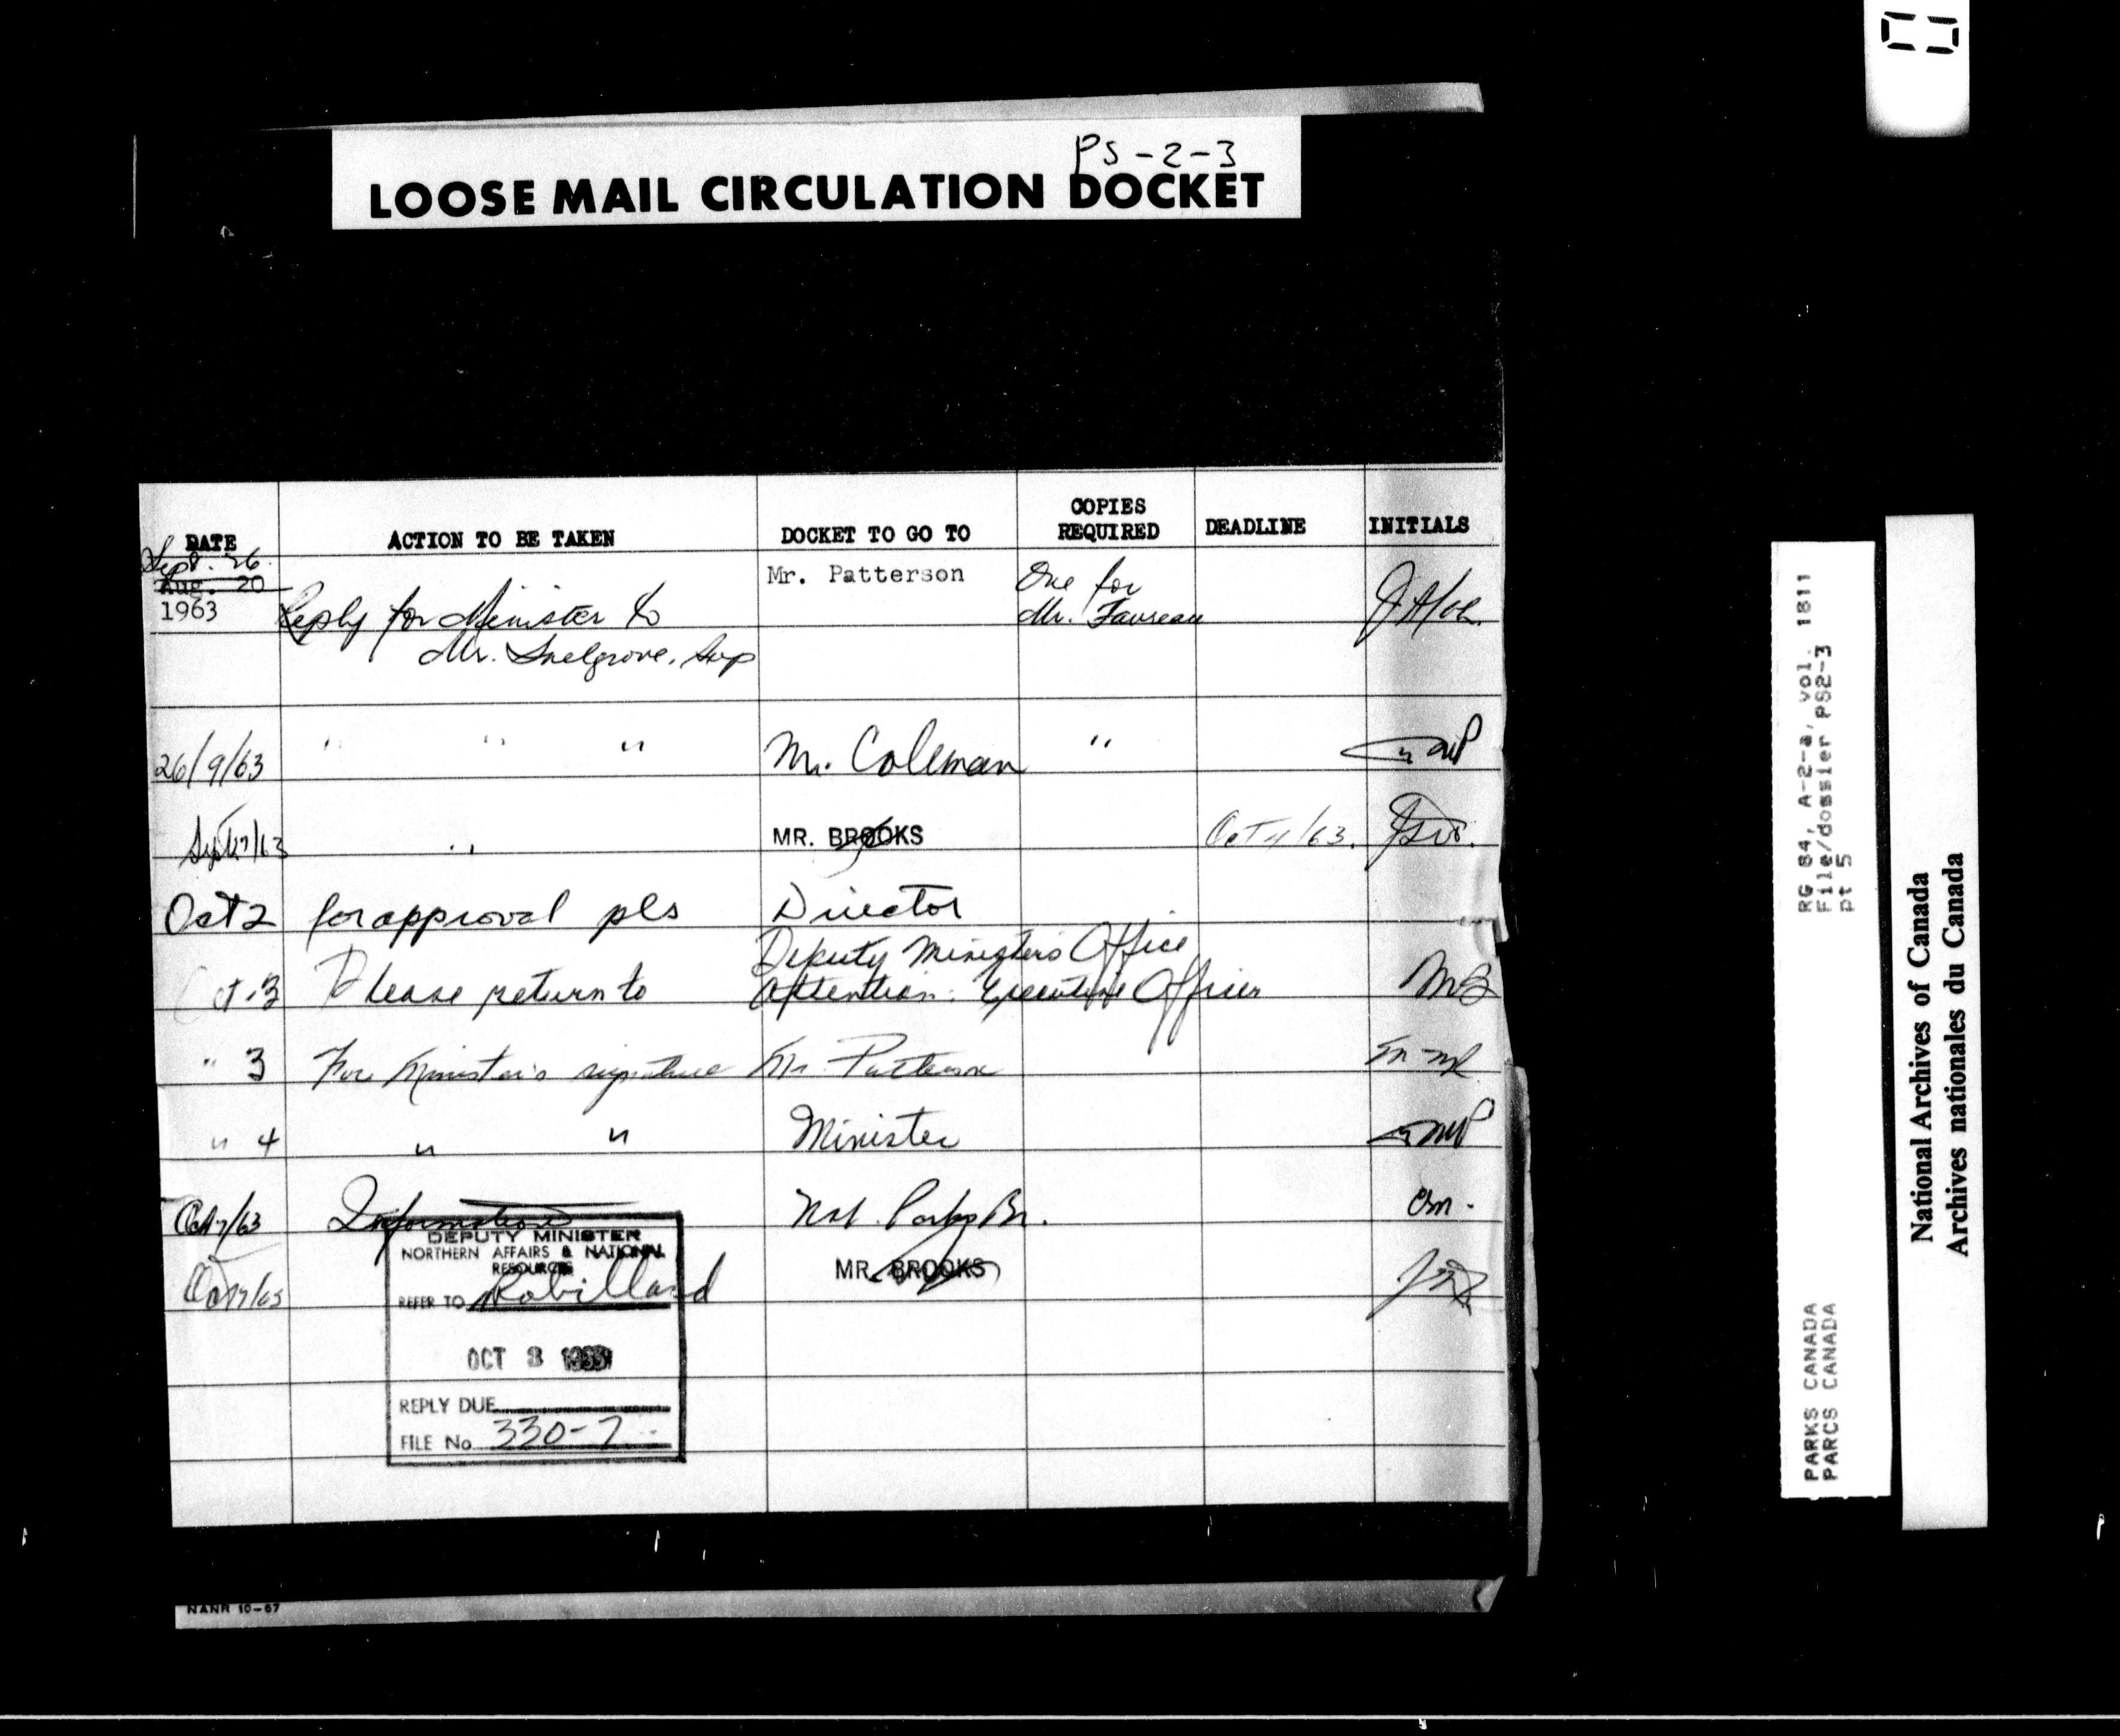 PS-2-3
LOOSE MAIL CIRCULATION DOCKET
DATE ACTION TO BE TAKEN DOCKET TO GO TO COPIES REQUIRED DEADLINE INITIALS
Sept. 26
Aug. 20
1963
Reply for Minister to
Mr. Snelgrove,
Mr. Patterson
One for
Mr. Favreau
26/9/63 " " " Mr. Coleman "
Sept 27/63 " MR. BROOKS Oct 4/63.
Oct 2 for approval pls Director
Oct. 3 Please return to Deputy Minister's Office
Attention: Executive Officer MB
" 3 For Minister's signature Mr. Patterson
" 4 " " Minister
Oct 7/63 Information Nat. Parks Br.
Oct 7/63 MR. BROOKS
DEPUTY MINISTER
NORTHERN AFFAIRS & NATIONAL
RESOURCES
REFER TO Robillard
OCT 3 1963
REPLY DUE
FILE No. 330-7
NANR 10-67
RG 84, A-2-a, vol. 1811
File/dossier PS2-3
pt 5
PARKS CANADA
PARCS CANADA
National Archives of Canada
Archives nationales du Canada